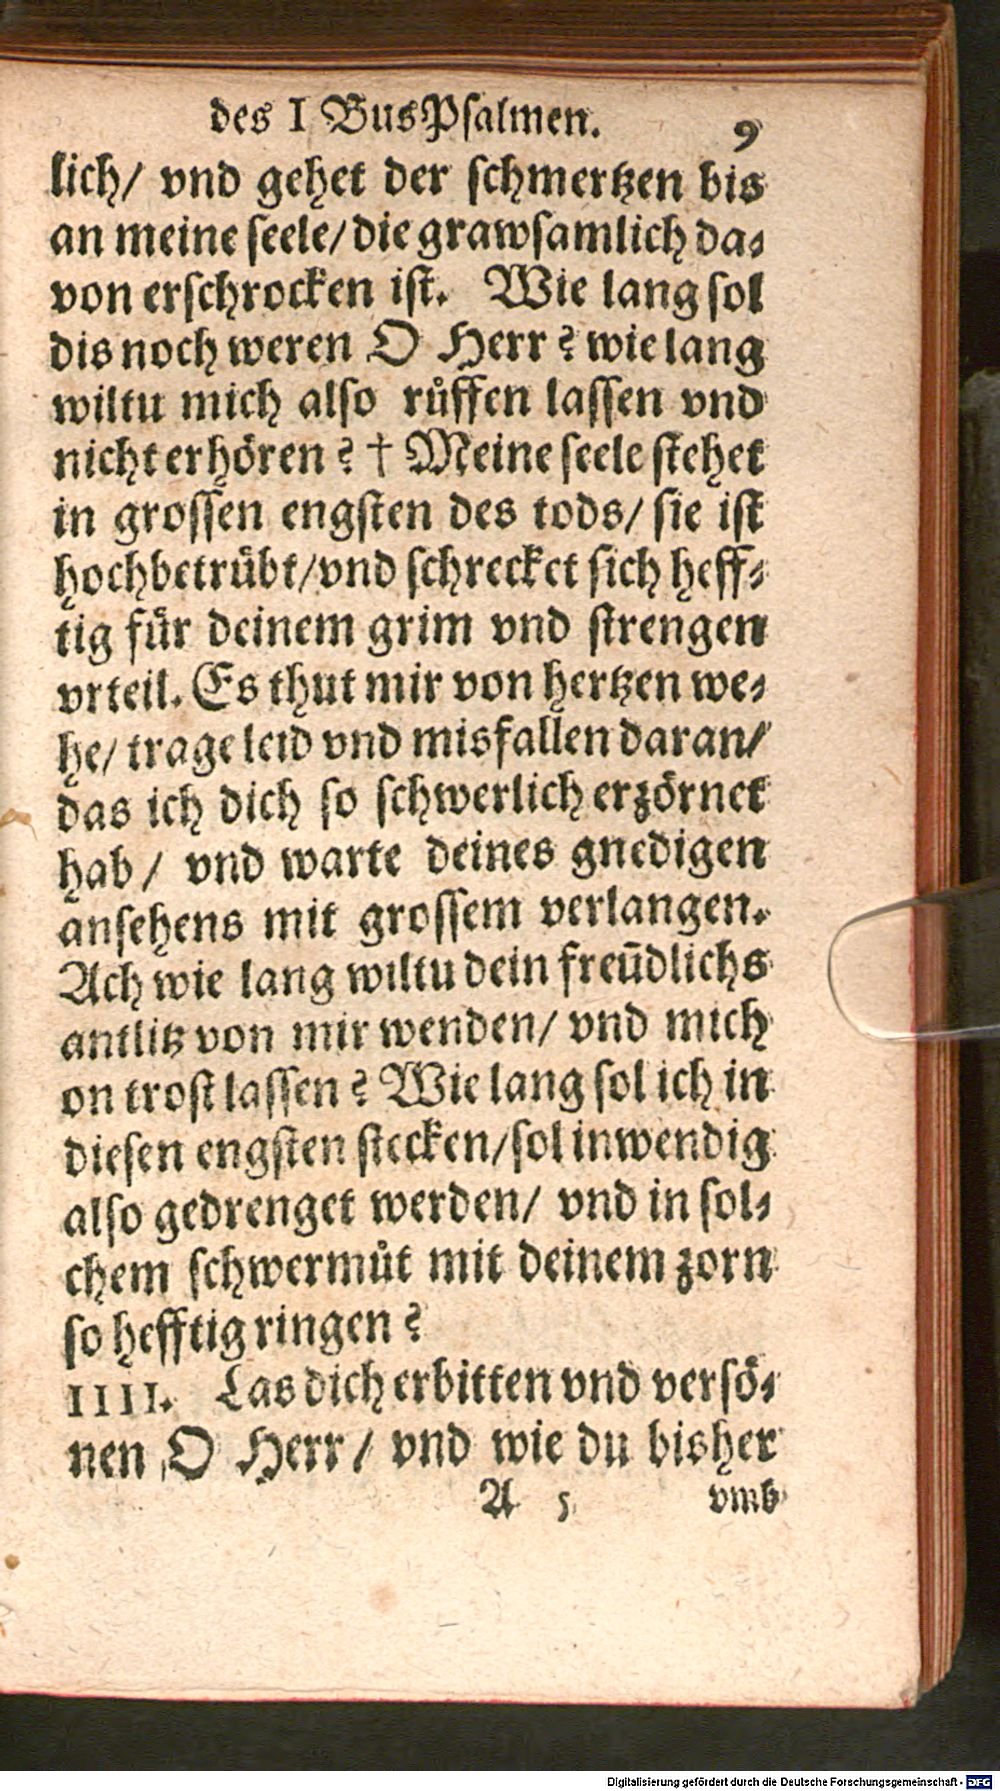 des I BusPsalmen. 9
lich/ vnd gehet der schmertzen bis
an meine seele/die grawsamlich da-
von erschrocken ist. Wie lang sol
dis noch weren O Herr? wie lang
wiltu mich also růffen lassen vnd
nicht erhören? † Meine seele stehet
in grossen engsten des tods/ sie ist
hochbetrübt/vnd schrecket sich heff-
tig für deinem grim vnd strengen
vrteil. Es thut mir von hertzen we-
he/ trage leid vnd misfallen daran/
das ich dich so schwerlich erzörnet
hab/ vnd warte deines gnedigen
ansehens mit grossem verlangen.
Ach wie lang wiltu dein freũdlichs
antlitz von mir wenden/ vnd mich
on trost lassen? Wie lang sol ich in
diesen engsten stecken/sol inwendig
also gedrenget werden/ vnd in sol-
chem schwermůt mit deinem zorn
so hefftig ringen?
IIII. Las dich erbitten vnd versö-
nen O Herr/ vnd wie du bisher
A 5 vmb
Digitalisierung gefördert durch die Deutsche Forschungsgemeinschaft - DFG